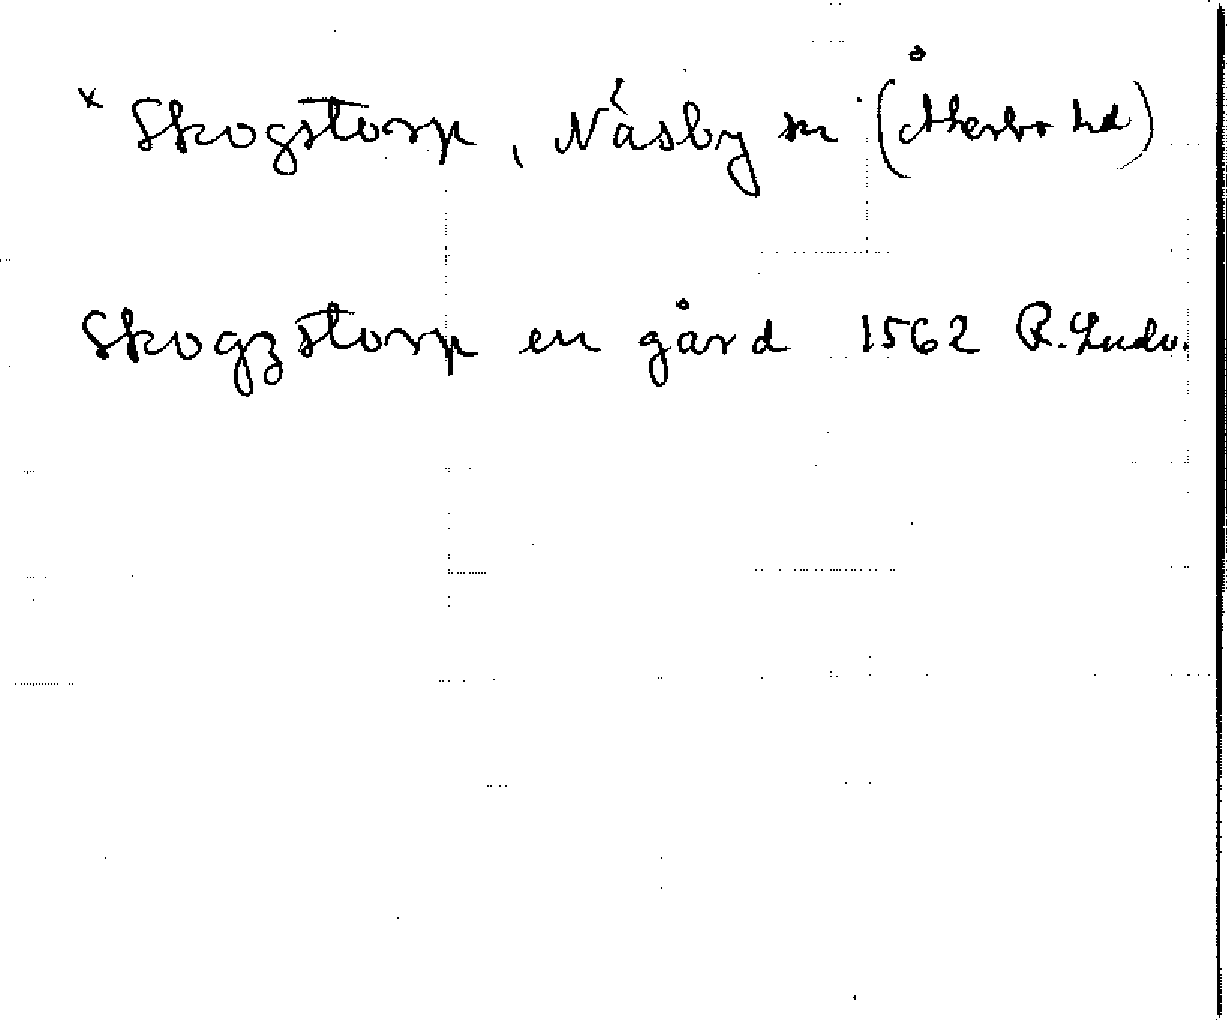 x Skogstorp, Näsby sn (Åkerbo hd)
Skogzstorp en gård 1562 R. Ludv.